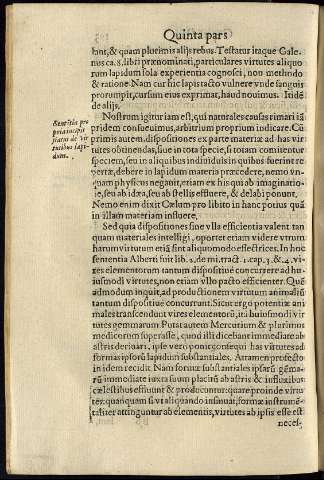 Quinta pars
sunt, & quam plurimis alijs rebus. Testatur itaque Gale-
nus ca. 8. libri prænominati, particulares virtutes aliquo
rum lapidum sola experientia cognosci, non methodo
& ratione. Nam cur hic lapis tacto vulnere vnde sanguis
prorumpit, cursum eius exprimat, haud nouimus. Itidē
de alijs.
Sententia pro
pria incipit
de virtutibus lapi-
dum.
Nostrum igitur iam est, qui naturales causas rimari iā
pridem consueuimus, arbitrium proprium indicare. Cū
primis autem dispositiones ex parte materiæ ad has vir
tutes obtinendas, siue in tota specie, si totam comitentur
speciem, seu in aliquibus indiuiduis in quibus fuerint re
pertæ, debere in lapidum materia præcedere, nemo vn-
quam physicus negauit, etiam ex his qui ab imaginatio-
ne, seu ab idæa, seu ab stellis effluere, & delabi ponunt.
Nemo enim dixit Cælum pro libito in hanc potius quā
in illam materiam influere.
Sed quia dispositiones siue vlla efficientia valent tan
quam materiales intelligi, oportet etiam videre vtrum
harum virtutum etiā sint aliquo modo effectrices. In hoc
sententia Alberti fuit lib. 2. de mi. tract. 1. cap. 3. & 4. vi-
res elementorum tantum dispositiuè concurrere ad hu-
iusmodi virtutes, non etiam vllo pacto efficienter. Quē
admodum inquit, ad productionem virtutum animaliū
tantum dispositiuè concurrunt. Sicut ergo potentiæ ani
males transcendunt vires elementorū, ita huiusmodi vir
tutes gemmarum. Putat autem Mercurium & plurimos
medicorum superasse, quod illi dicebant immediate ab
astris deriuari. ipse vero ponit quod sequi has virtutes ad
formas ipsorū lapidum substantiales. Attamen profecto
in idem recidit. Nam formæ substantiales ipsarū gēma-
rū immediate iuxta suum placitū ab astris & influxibus
cælestibus effluunt & producuntur: quare proinde virtu-
tes: quanquam si vt aliquando insinuat, formæ instrumē-
taliter attinguntur ab elementis, virtutes ab ipsis esse est
neces-